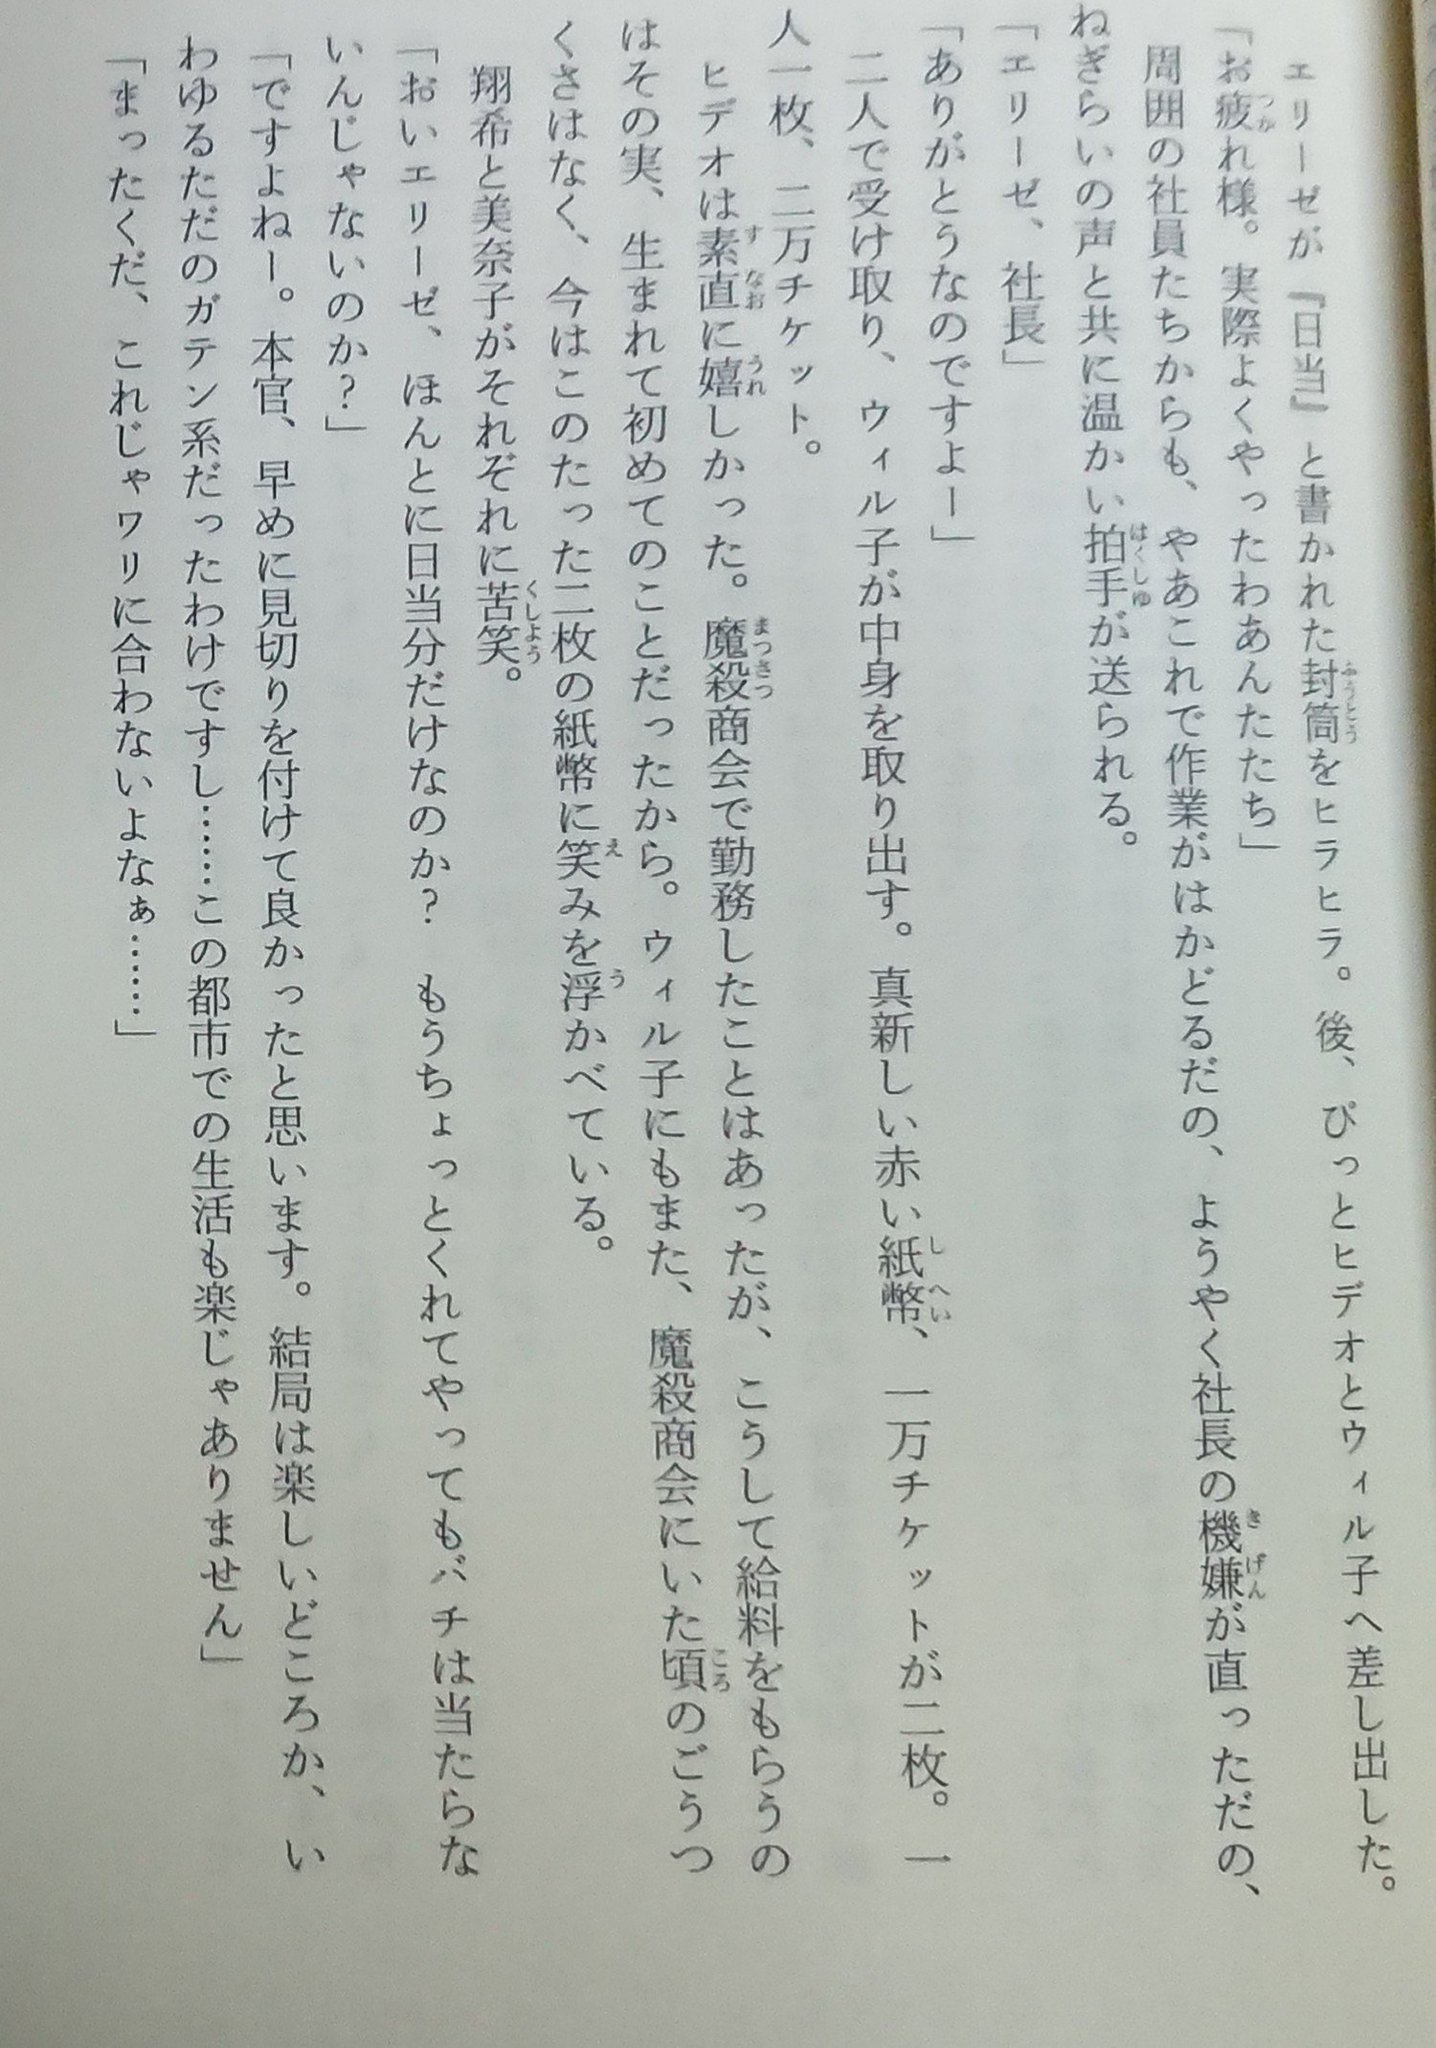 エリーゼが『日当』と書かれた封筒をヒラヒラ。後、ぴっとヒデオとウィル子へ差し出した。
「お疲れ様。実際よくやったわあんたたち」
周囲の社員たちからも、やあこれで作業がはかどるだの、ようやく社長の機嫌が直っただの、
ねぎらいの声と共に温かい拍手が送られる。
「エリーゼ、社長」
「ありがとうなのですよー」
二人で受け取り、ウィル子が中身を取り出す。真新しい赤い紙幣、一万チケットが二枚。一
人一枚、二万チケット。
ヒデオは素直に嬉しかった。魔殺商会で勤務したことはあったが、こうして給料をもらうの
はその実、生まれて初めてのことだったから。ウィル子にもまた、魔殺商会にいた頃のごうつ
くさはなく、今はこのたった二枚の紙幣に笑みを浮かべている。
翔希と美奈子がそれぞれに苦笑。
「おいエリーゼ、ほんとに日当分だけなのか？　もうちょっとくれてやってもバチは当たらな
いんじゃないのか？」
「ですよねー。本官、早めに見切りを付けて良かったと思います。結局は楽しいどころか、い
わゆるただのガテン系だったわけですし……この都市での生活も楽じゃありません」
「まったくだ、これじゃワリに合わないよなぁ……」